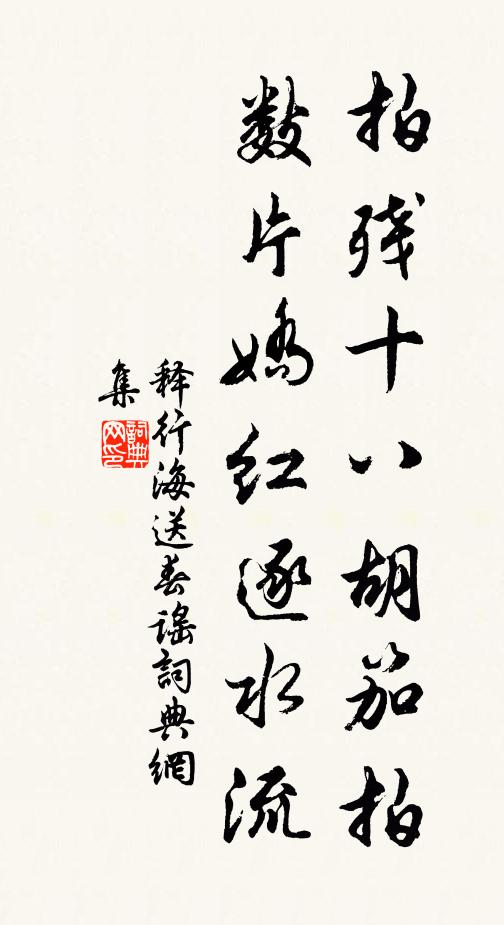 拍残十八胡笳拍
数片娇红逐水流
释行海送春谣詞典網
集
詞典网印